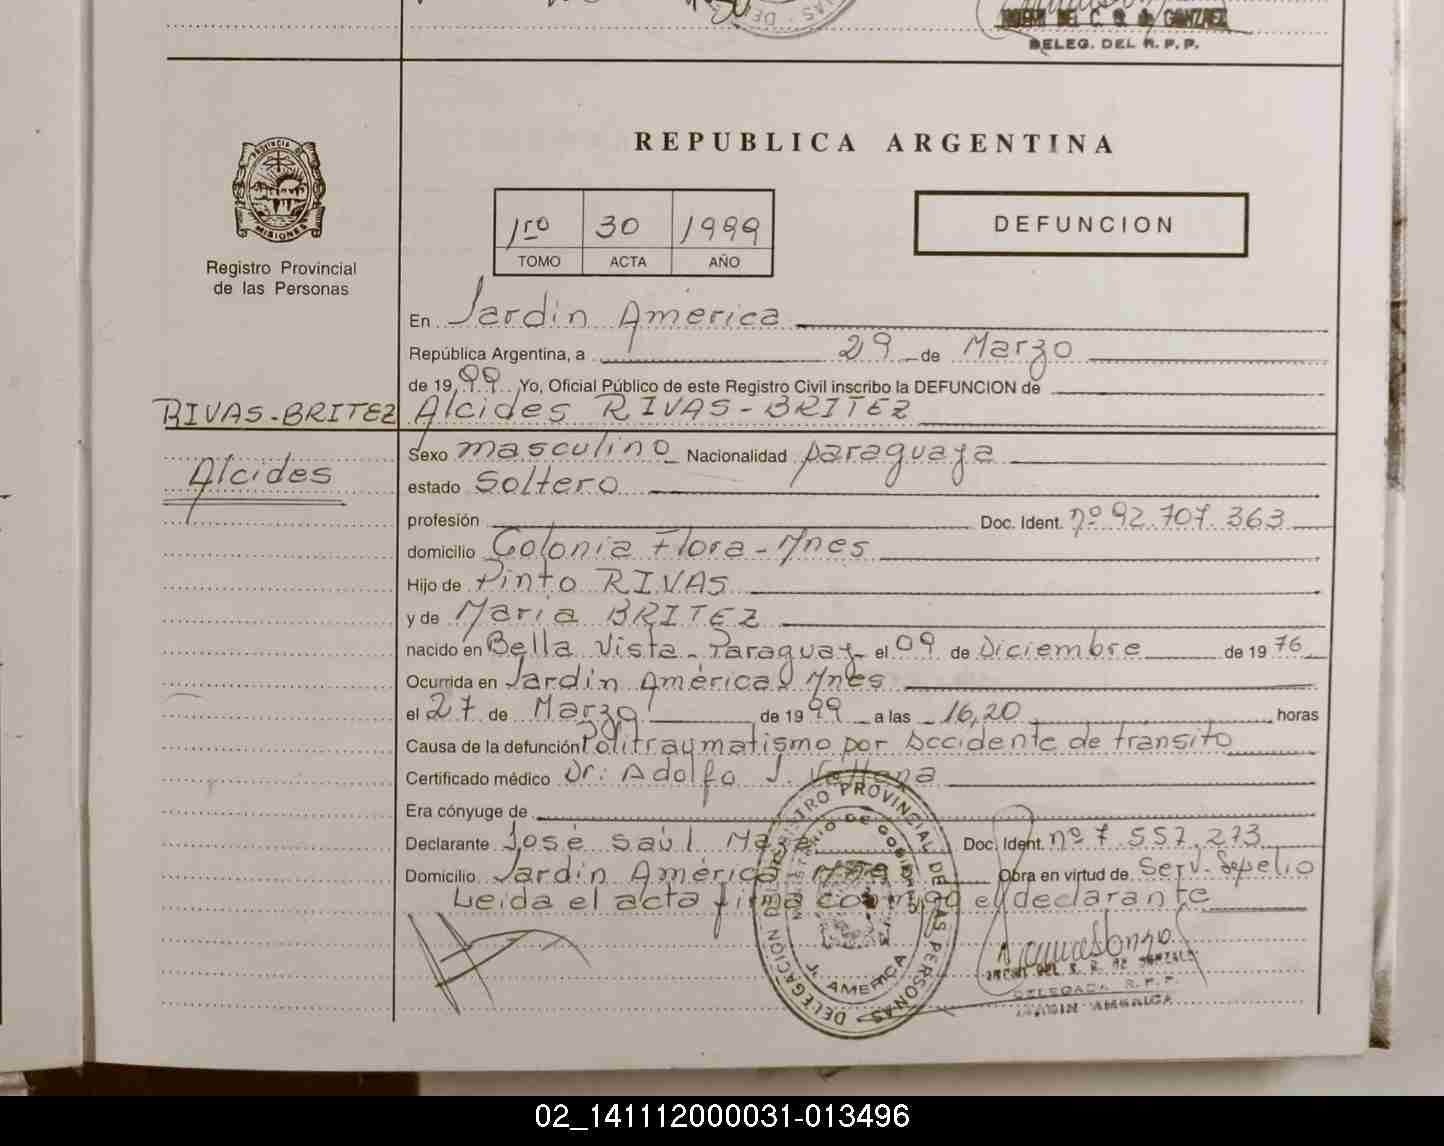 DELEG. DEL R. P. P.
REPUBLICA ARGENTINA
PROVINCIA DE
MISIONES
Registro Provincial
de las Personas
1ro 30 1999
TOMO ACTA AÑO
DEFUNCION
En Jardin América
República Argentina, a 29 de Marzo
de 1999 Yo, Oficial Público de este Registro Civil inscribo la DEFUNCION de
RIVAS-BRITEZ Alcides RIVAS-BRITEZ
Alcides
Sexo masculino Nacionalidad paraguaya
estado Soltero
profesión Doc. Ident. nº 92.707.363
domicilio Colonia Flora-Mnes
Hijo de Pinto RIVAS
y de Maria BRITEZ
nacido en Bella Vista-Paraguay el 09 de Diciembre de 1976
Ocurrida en Jardin América, Mnes
el 27 de Marzo de 1999 a las 16,20 horas
Causa de la defunción Politraumatismo por accidente de transito
Certificado médico Dr. Adolfo J.
Era cónyuge de
Declarante José Saúl Doc. Ident. nº 7.557.273
Domicilio Jardin América Mnes Obra en virtud de Serv. Sepelio
Leida el acta firma conmigo el declarante
REGISTRO PROVINCIAL DE LAS PERSONAS
MINISTERIO DE GOBIERNO
DELEGACIÓN
J. AMERICA
DELEGADA R.P.P.
JARDIN AMERICA
02_141112000031-013496